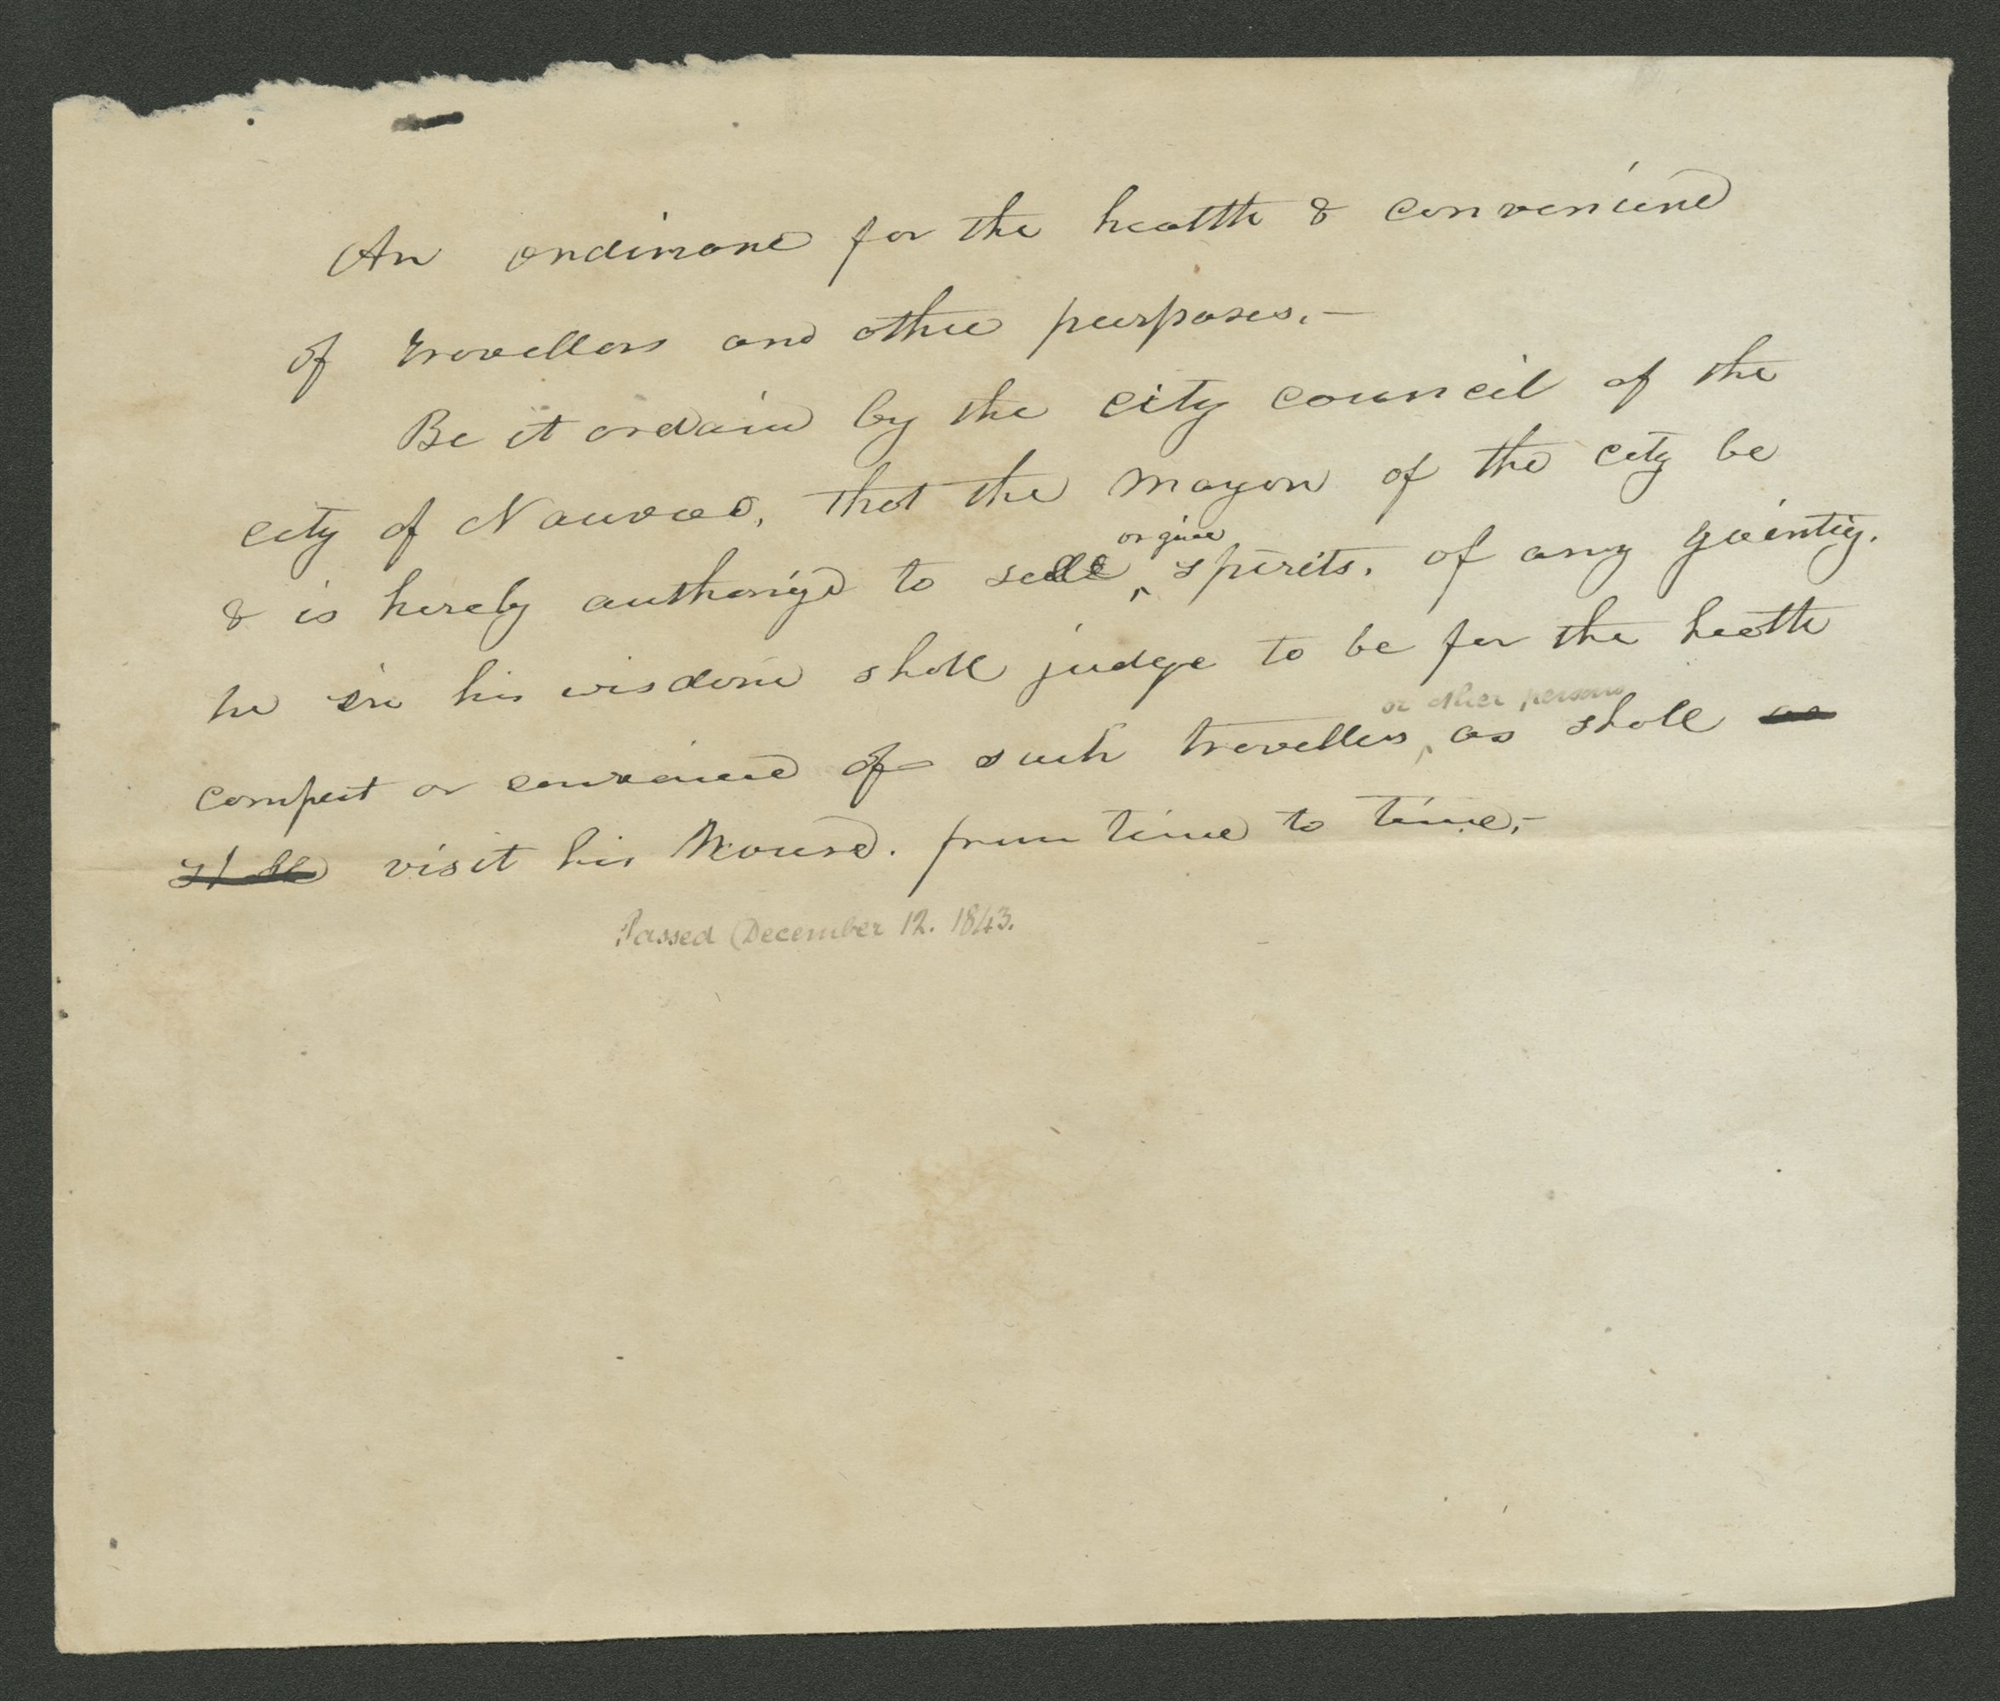 An ordinance for the health & convenience
of travellers and other purposes.—
Be it ordain by the city council of the
city of Nauvoo, that the Mayor of the city be
or give
& is hereby authorized to sell ‸ spirits, of any quantity.
he in his wisdom shall judge to be for the health
or other persons
comfort or convenience of such travellers ‸ as shall as
shall visit his house. from time to time.—
Passed December 12. 1843.